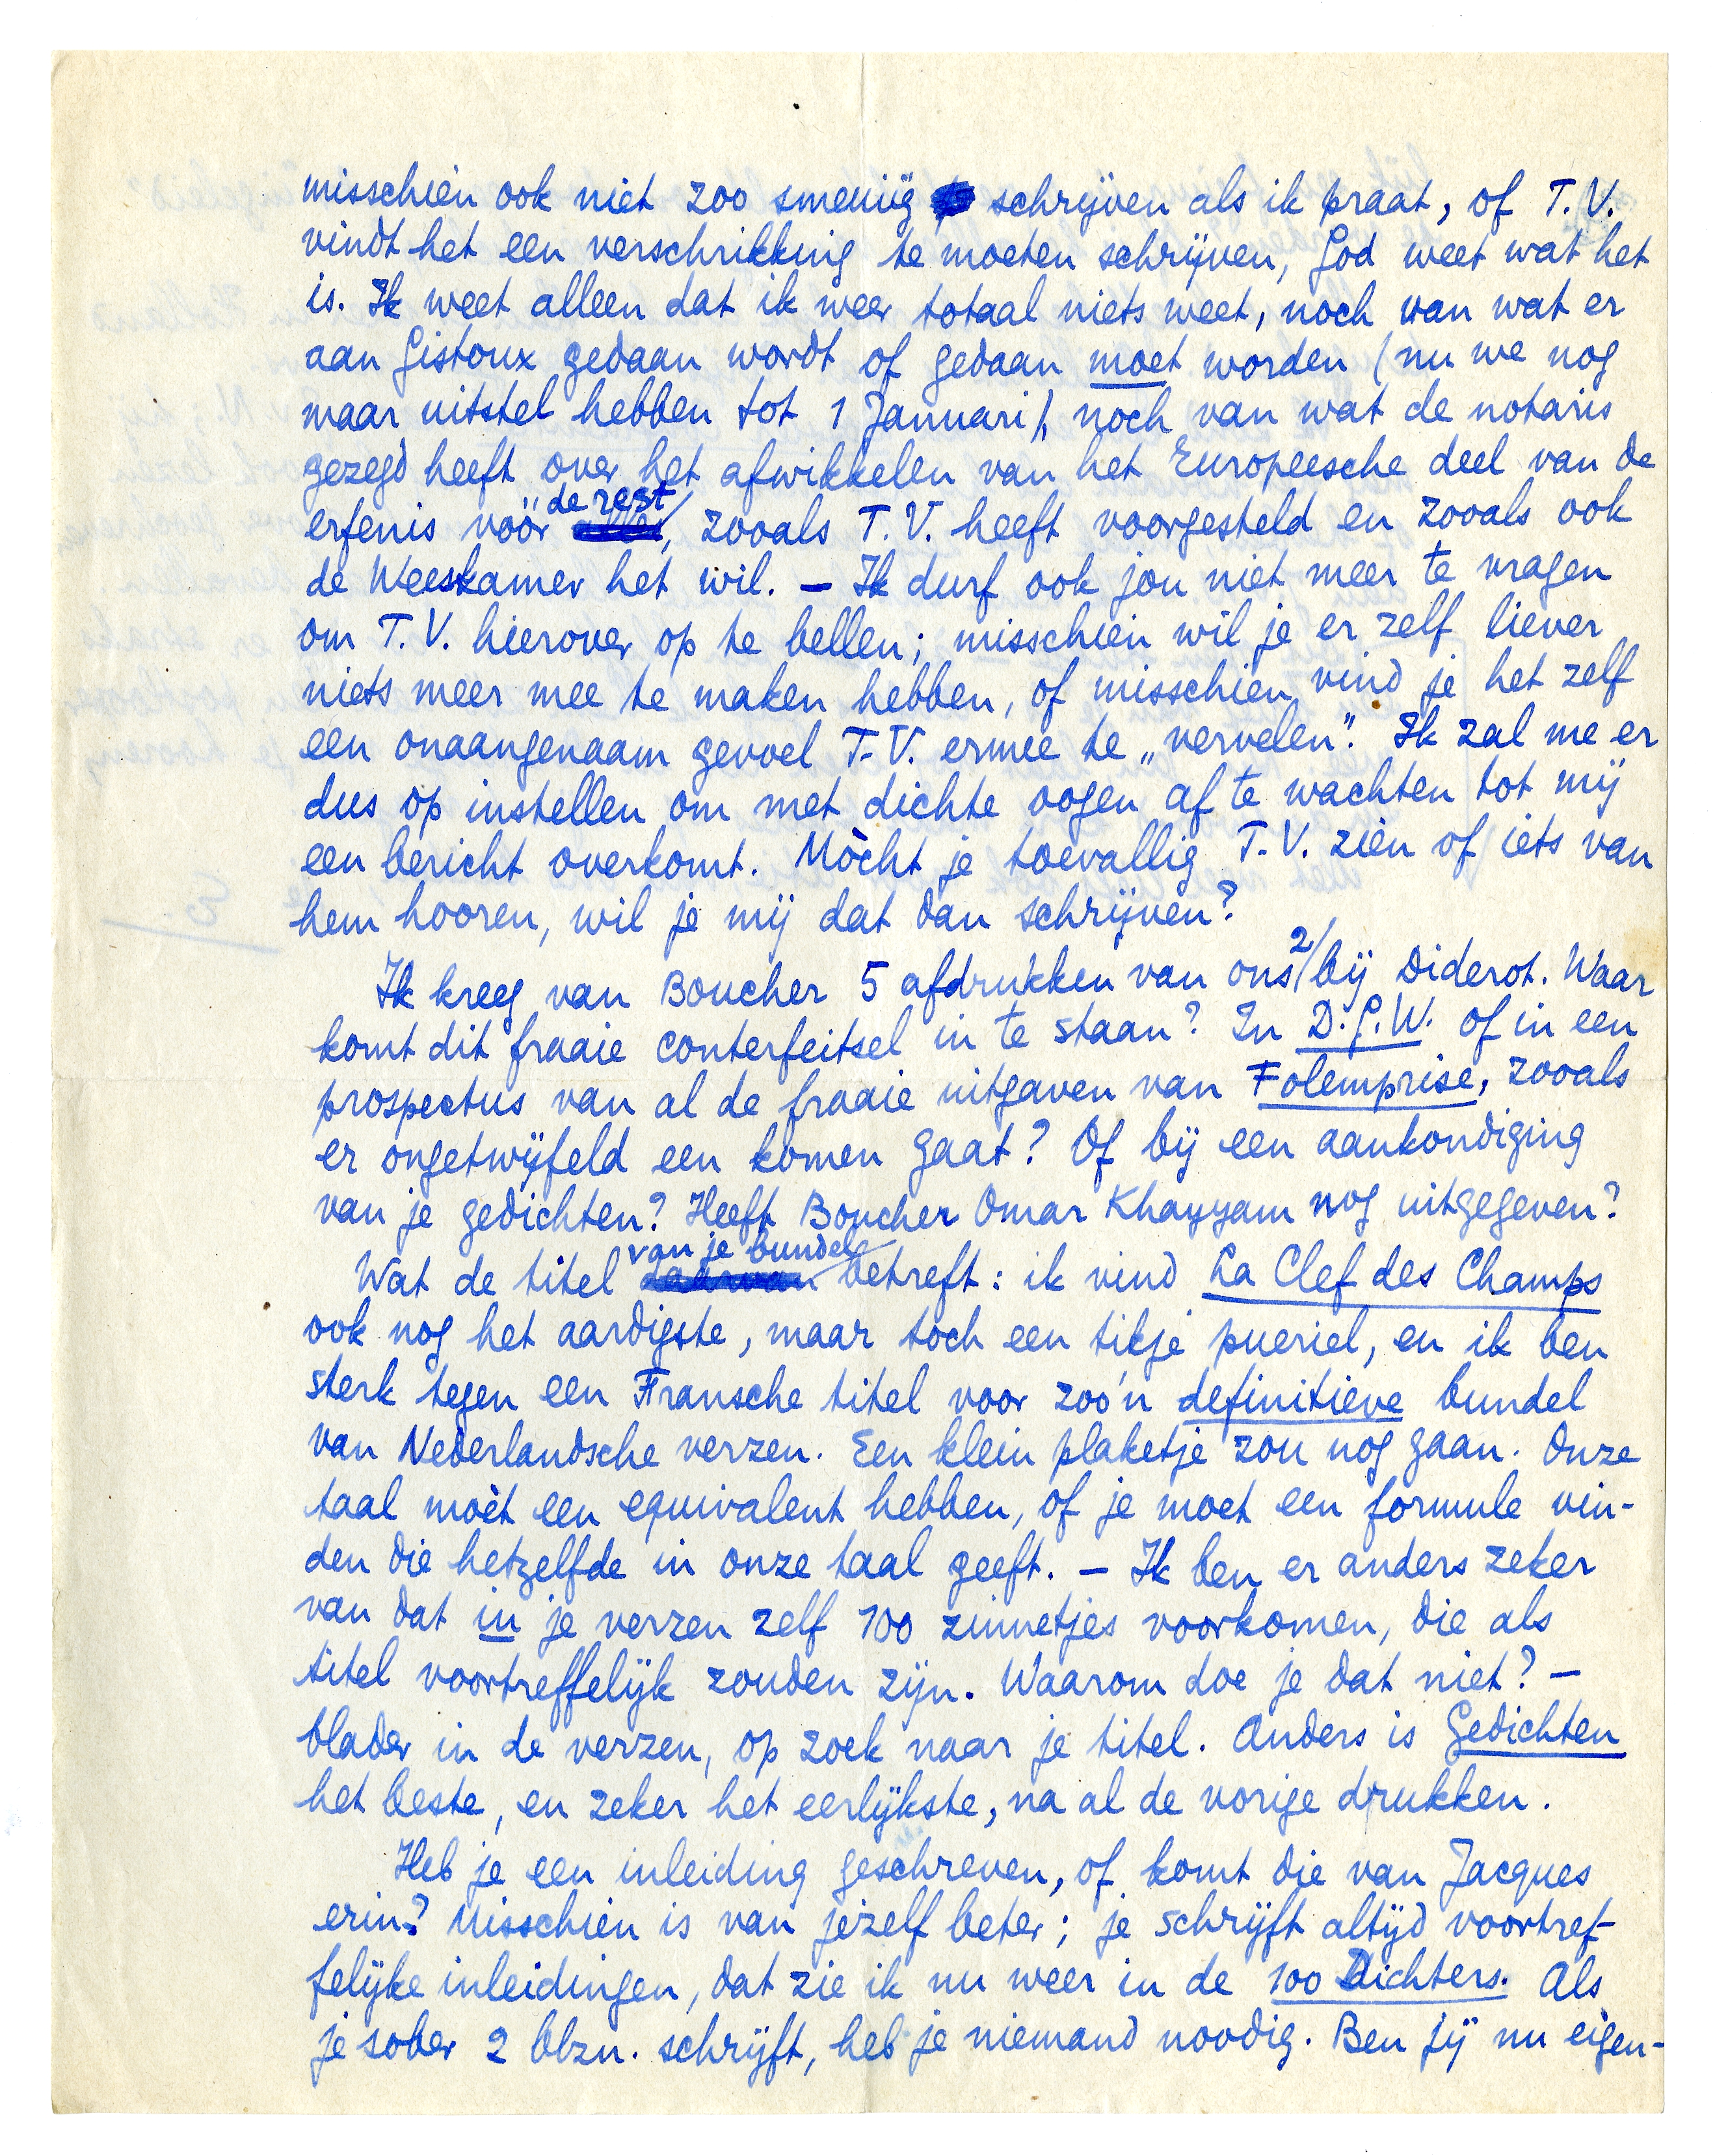 misschien ook niet zoo smeuïg schrijven als ik praat, of T.V.
vindt het een verschrikking te moeten schrijven, God weet wat het
is. Ik weet alleen dat ik weer totaal niets weet, noch van wat er
aan Gistoux gedaan wordt of gedaan moet worden (nu we nog
maar uitstel hebben tot 1 Januari), noch van wat de notaris
gezegd heeft over het afwikkelen van het Europeesche deel van de
erfenis vóór de rest, zooals T.V. heeft voorgesteld en zooals ook
de Weeskamer het wil. – Ik durf ook jou niet meer te vragen
om T.V. hierover op te bellen; misschien wil je er zelf liever
niets meer mee te maken hebben, of misschien vind je het zelf
een onaangenaam gevoel T.V. ermee te „vervelen". Ik zal me er
dus op instellen om met dichte oogen af te wachten tot mij
een bericht overkomt. Mòcht je toevallig T.V. zien of iets van
hem hooren, wil je mij dat dan schrijven?
Ik kreeg van Boucher 5 afdrukken van ons 2 bij Diderot. Waar
komt dit fraaie conterfeitsel in te staan? In D.G.W. of in een
prospectus van al de fraaie uitgaven van Folemprise, zooals
er ongetwijfeld een komen gaat? Of bij een aankondiging
van je gedichten? Heeft Boucher Omar Khayyam nog uitgegeven?
Wat de titel van je bundel betreft: ik vind La Clef des Champs
ook nog het aardigste, maar toch een tikje pueriel, en ik ben
sterk tegen een Fransche titel voor zoo'n definitieve bundel
van Nederlandsche verzen. Een klein plaketje zou nog gaan. Onze
taal moèt een equivalent hebben, of je moet een formule vin-
den die hetzelfde in onze taal geeft. – Ik ben er anders zeker
van dat in je verzen zelf 100 zinnetjes voorkomen, die als
titel voortreffelijk zouden zijn. Waarom doe je dat niet? –
blader in de verzen, op zoek naar je titel. Anders is Gedichten
het beste, en zeker het eerlijkste, na al de vorige drukken.
Heb je een inleiding geschreven, of komt die van Jacques
erin? Misschien is van jezelf beter; je schrijft altijd voortref-
felijke inleidingen, dat zie ik nu weer in de 100 Dichters. Als
je sober 2 blzn. schrijft, heb je niemand noodig. Ben jij nu eigen-